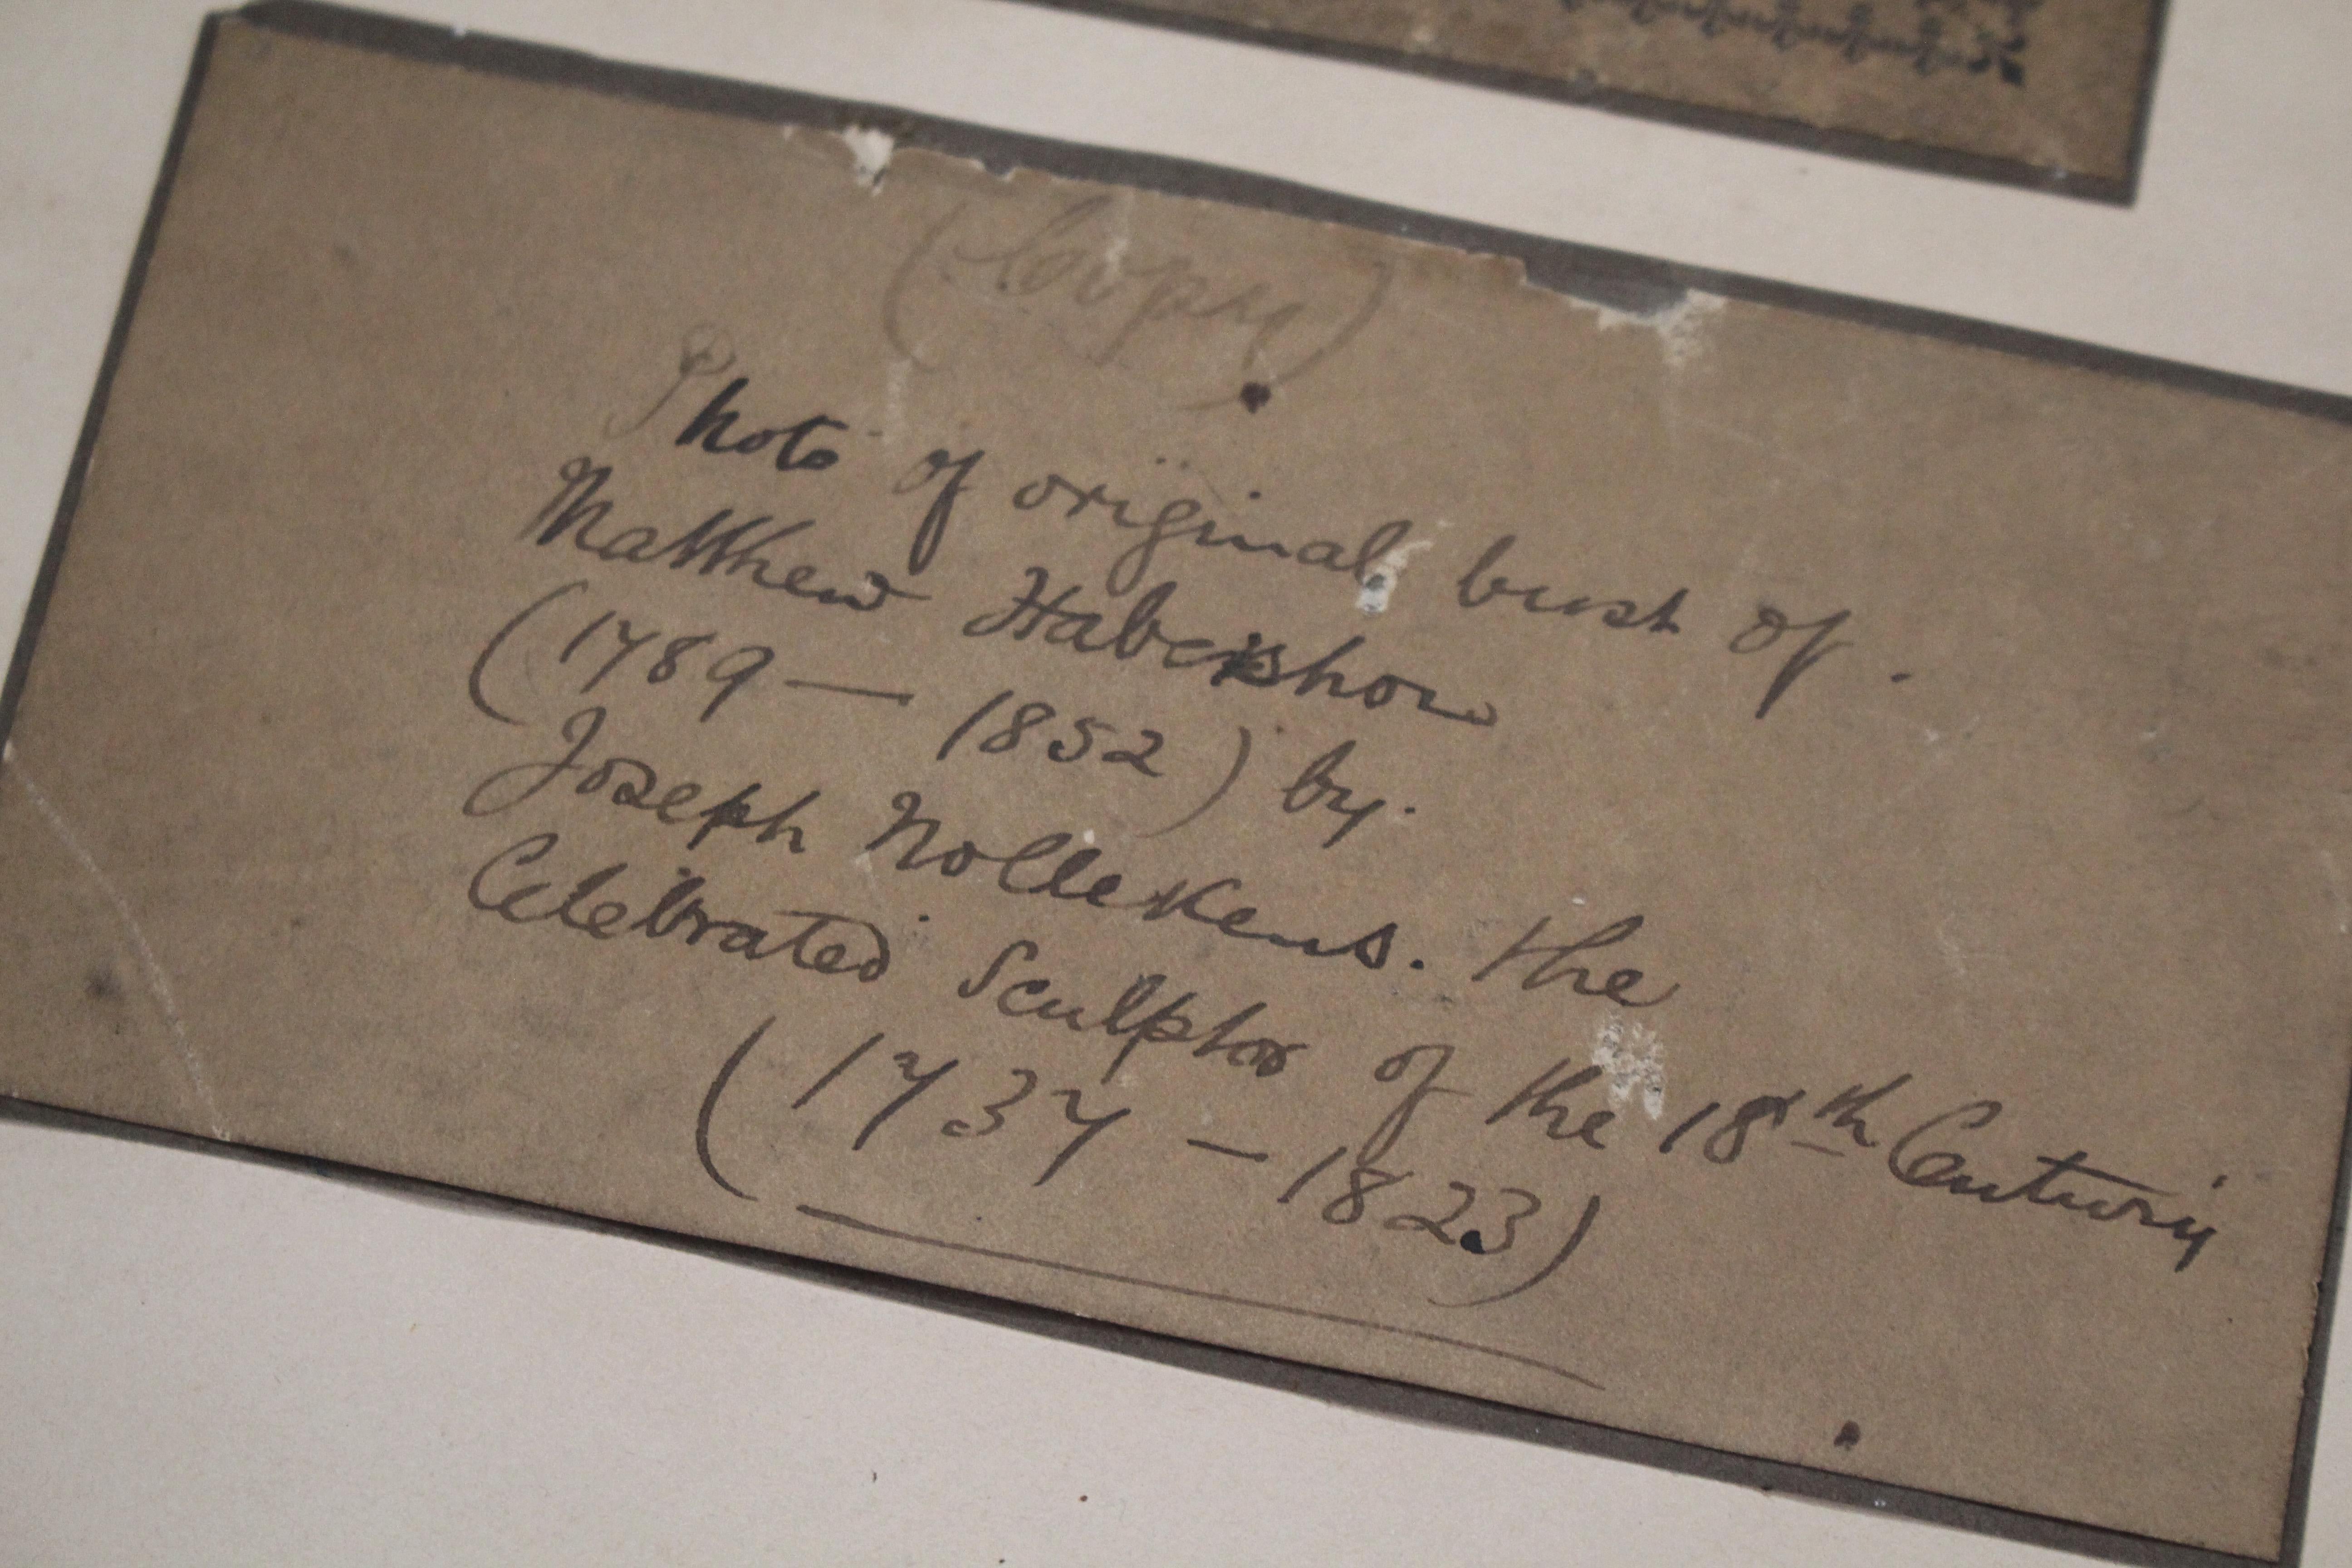 (Copy)
Photo of original bust of.
Matthew Habershon
(1789 — 1852) by.
Joseph Nollekens. the
Celebrated Sculptor of the 18th Century
(1737 — 1823)